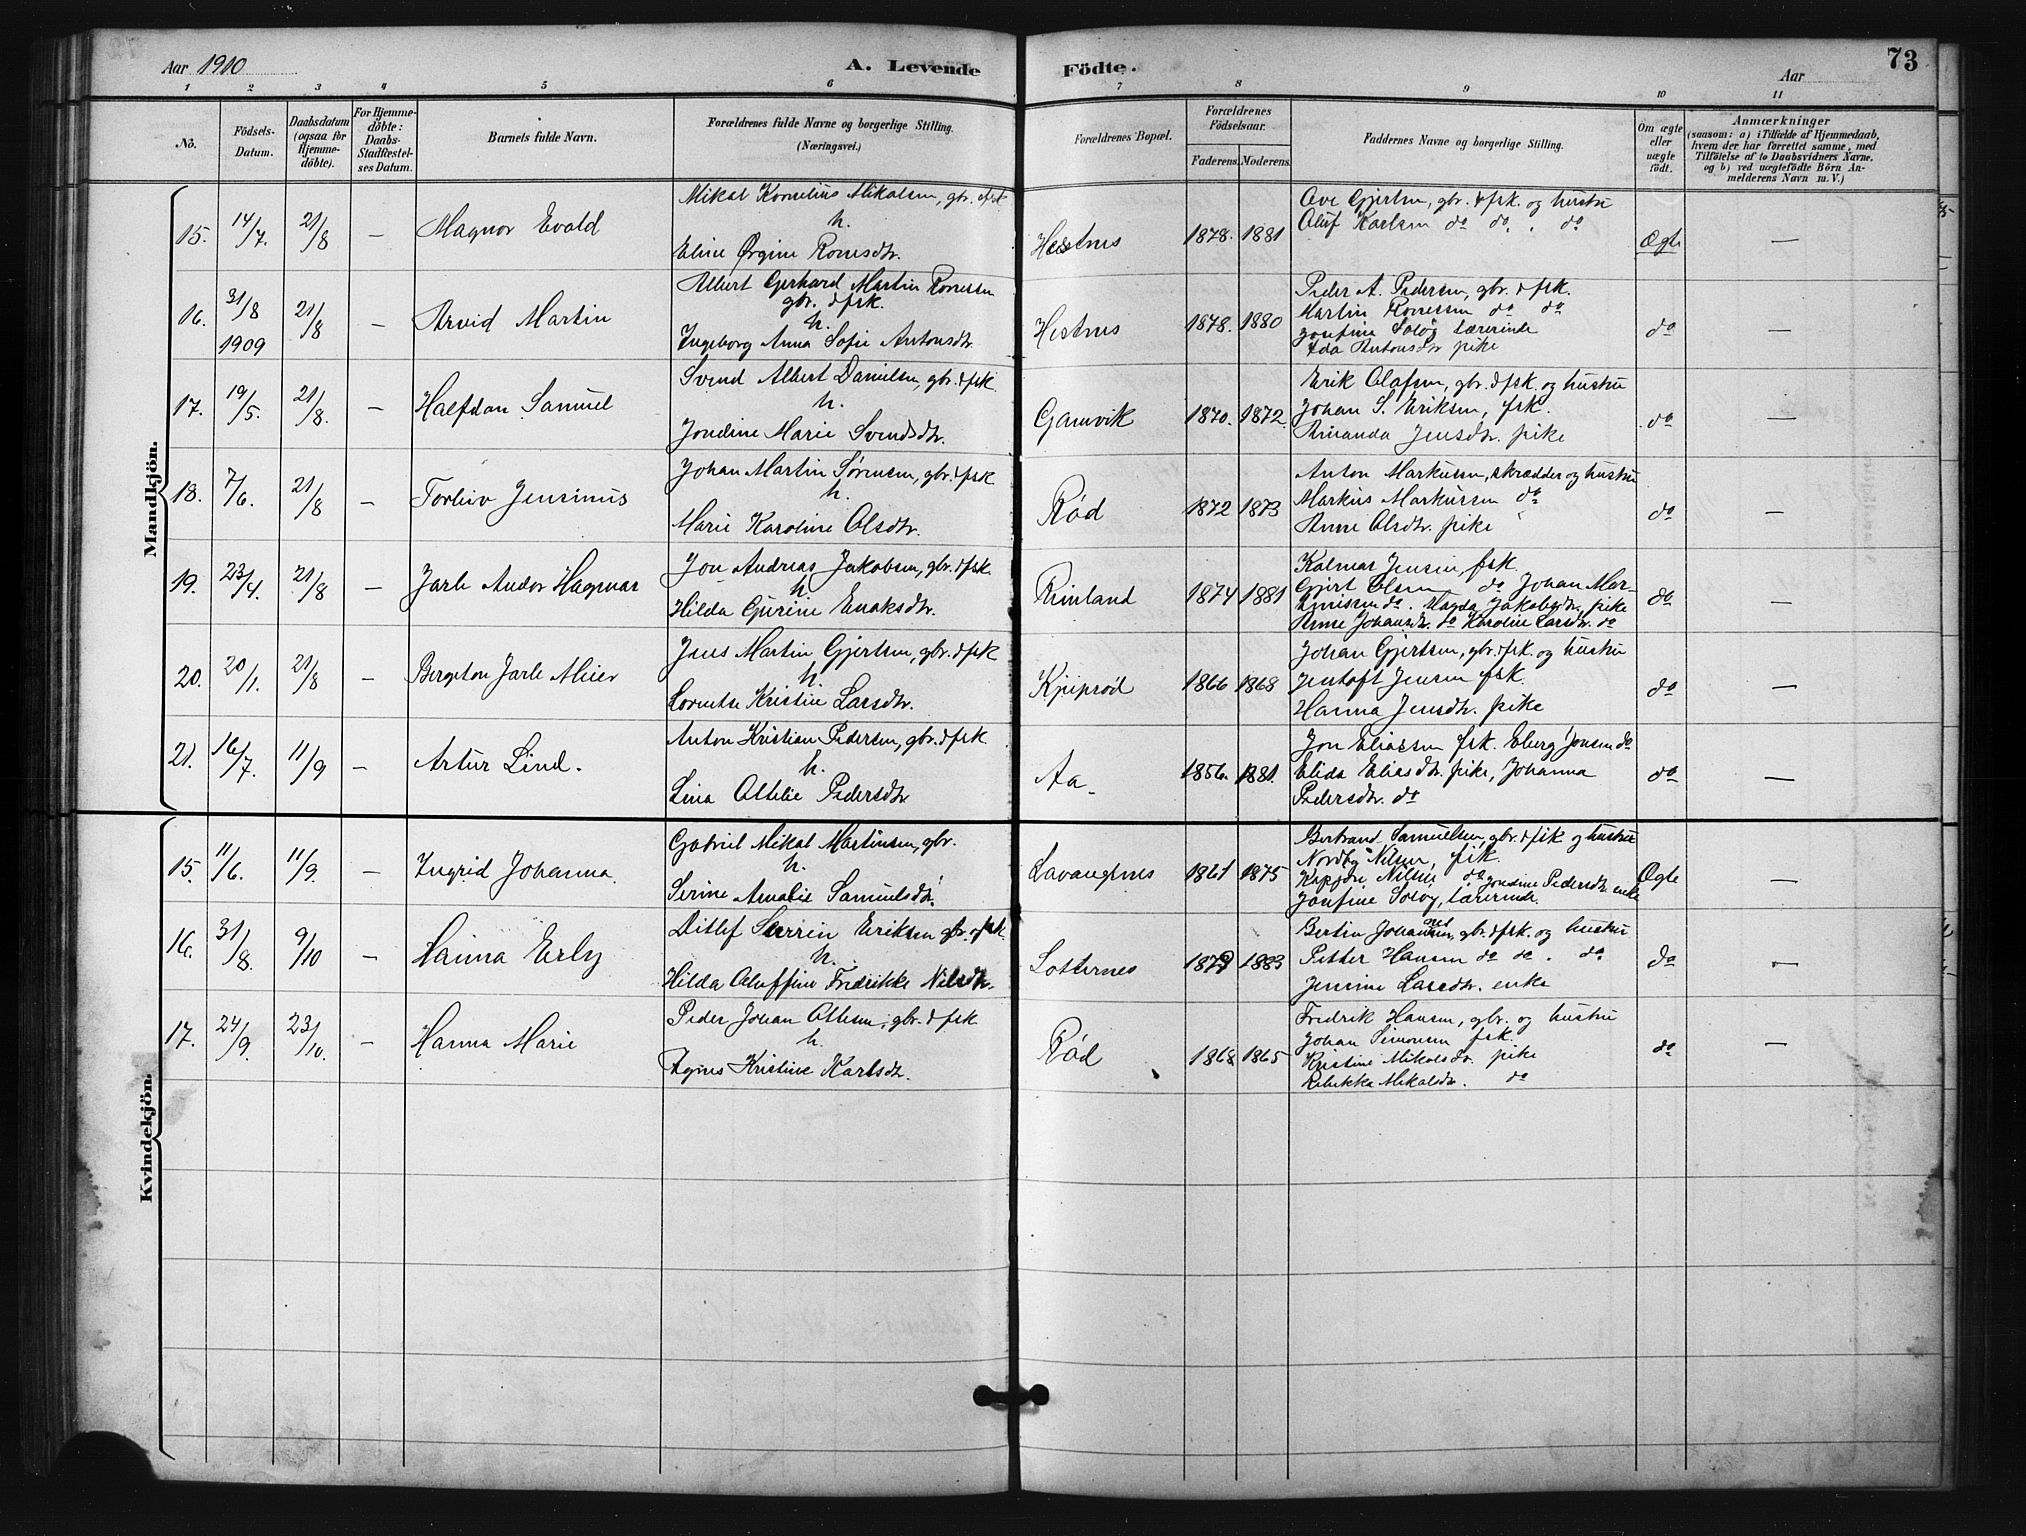 Aar 1910
A. Levende Födte.
Aar
73
1 2 3 4 5 6 7 8 9 10 11
No.
Födsels-Datum.
Daabsdatum (ogsaa for Hjemmedöbte).
For Hjemmedöbte: Daabs-Stadfæstelses Datum.
Barnets fulde Navn.
Forældrenes fulde Navne og borgerlige Stilling. (Næringsvei.)
Forældrenes Bopæl.
Forældrenes Födselsaar.
Faderens. Moderens.
Faddernes Navne og borgerlige Stilling.
Om ægte eller uægte født.
Anmærkninger
(saasom: a) i Tilfælde af Hjemmedaab,
hvem der har forrettet samme, med
Tilföielse af to Daabsvidners Navne,
og b) ved uægtefödte Börn An-
melderens Navn m. V.)
Mandkjön.
15. 14/7. 21/8 — Magnor Evald
Mikal Kornelius Mikalsen, gbr. & fsk
h.
Eline Ørgine Ronesdtr.
Hestnes 1878. 1881
Ove Gjertsen, gbr. & fsk. og hustru
Oluf Karlsen do do. , do
Ægte —
16. 31/8 1909 21/8 — Arvid Martin
Albert Gerhard Martin Ronessen
gbr. & fsk.
h.
Ingeborg Anna Sofie Antonsdtr.
Hestnes 1878. 1880
Peder A. Pedersen, gbr. & fsk.
Martin Ronessen do do
Josefine Soløy lærerinde
Ida Antonsdtr pike
do —
17. 19/5. 21/8. — Halfdan Samuel
Svend Albert Danielsen, gbr. & fsk.
h.
Jondine Marie Svendsdtr.
Gamvik 1870. 1872.
Erik Olafsen, gbr. & fsk. og hustru
Johan S. Eriksen, fsk.
Amanda Jensdtr. pike
do —
18. 7/6. 21/8 — Torleiv Jensinus
Johan Martin Sørensen, gbr. & fsk
h.
Marie Karoline Olsdtr.
Rød 1872 1873
Anton Markusen, skrædder og hustru
Markus Markussen do
Anne Olsdtr. pike
do —
19. 23/4. 21/8 — Jarle Andor Hagmar
Jon Andreas Jakobsen, gbr. & fsk.
h.
Hilda Gurine Enoksdtr.
Rinland 1874 1881
Kalmar Jensen, fsk.
Gjert Olsen do Johan Mar-
thinissen do. Magda Jakobsdtr. pike
Anne Johansdtr. do Karoline Larsdtr. do
do —
20. 20/1. 21/8 — Bergeton Jarle Meier
Jens Martin Gjertsen, gbr. & fsk
h.
Lornetse Kristine Larsdtr.
Kjeiprød 1866 1868
Johan Gjertsen, gbr. & fsk. og hustru
Jentoft Jensen fsk.
Hanna Jensdtr. pike
do —
21. 16/7. 11/9 — Artur Lind.
Anton Kristian Pedersen, gbr. & fsk.
h.
Lina Ottelie Pedersdtr.
Aa. 1856. 1881.
Jon Eliassen fsk. Eberg Jonsen do
Elida Eliasdtr. pike, Johanna
Pedersdtr. do
do —
Kvindekjön.
15. 11/6. 11/9. — Ingrid Johanna.
Gabriel Mikal Martinsen, gbr.
h.
Serine Amalie Samuelsdtr.
Lavangsnes 1861 1875
Bertrand Samuelsen, gbr. & fsk og hustru
Nordby Nilsen, fsk.
Nilsen do Jondine Pedersdtr. enke
Josefine Soløy, lærerinde.
Ægte —
16. 31/8. 9/10 — Hanna Erly
Ditlef Serrin Eriksen gbr. & fsk.
h.
Hilda Oluffine Fredrikke Nilsdtr.
Lotternes 1879 1883
Bertin Johannesen, gbr. & fsk. og hustru
Petter Hansen do do. do
Jensine Larsdtr. enke
do —
17. 24/9. 23/10. — Hanna Marie
Peder Johan Ottesen, gbr. & fsk.
h.
Agnes Kristine Karlsdtr.
Rød 1868 1865
Fredrik Hansen, gbr. og hustru
Johan Simonsen fsk.
Kristine Mikalsdtr. pike
Rebekka Mikalsdtr. do
do —